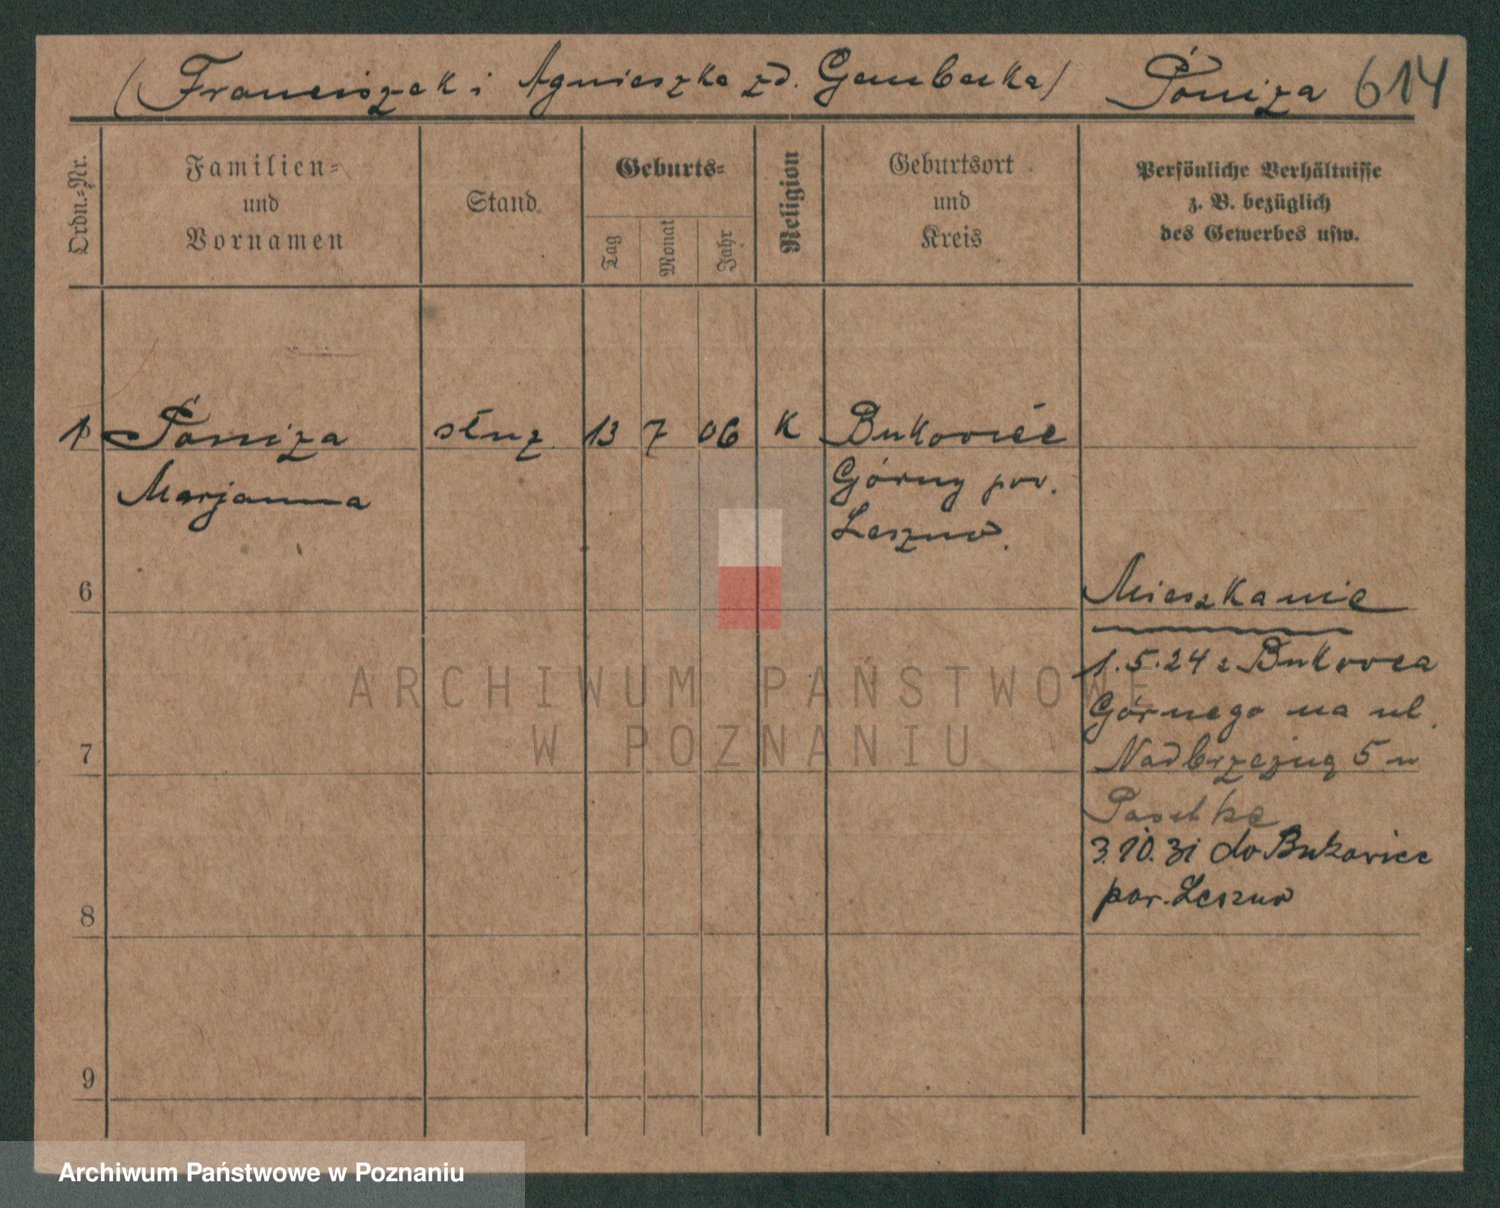 (Franciszek i Agnieszka zd. Gembarka) Póniza 614
Ordn.=Nr.
Familien=
und
Vornamen
Stand
Geburts=
Tag
Monat
Jahr
Religion
Geburtsort
und
Kreis
Persönliche Verhältnisse
z. B. bezüglich
des Gewerbes usw.
1 Póniza służ. 13 7 06 K Bukowiec
Marjanna Górny pow.
Leszno.
6
Mieszkanie
1.5.24 z Bukowca
Górnego na ul.
7
Nadbrzeżną 5 u
3.10.31 do Bukowiec
pow. Leszno
8
9
ARCHIWUM PAŃSTWOWE
W POZNANIU
Archiwum Państwowe w Poznaniu